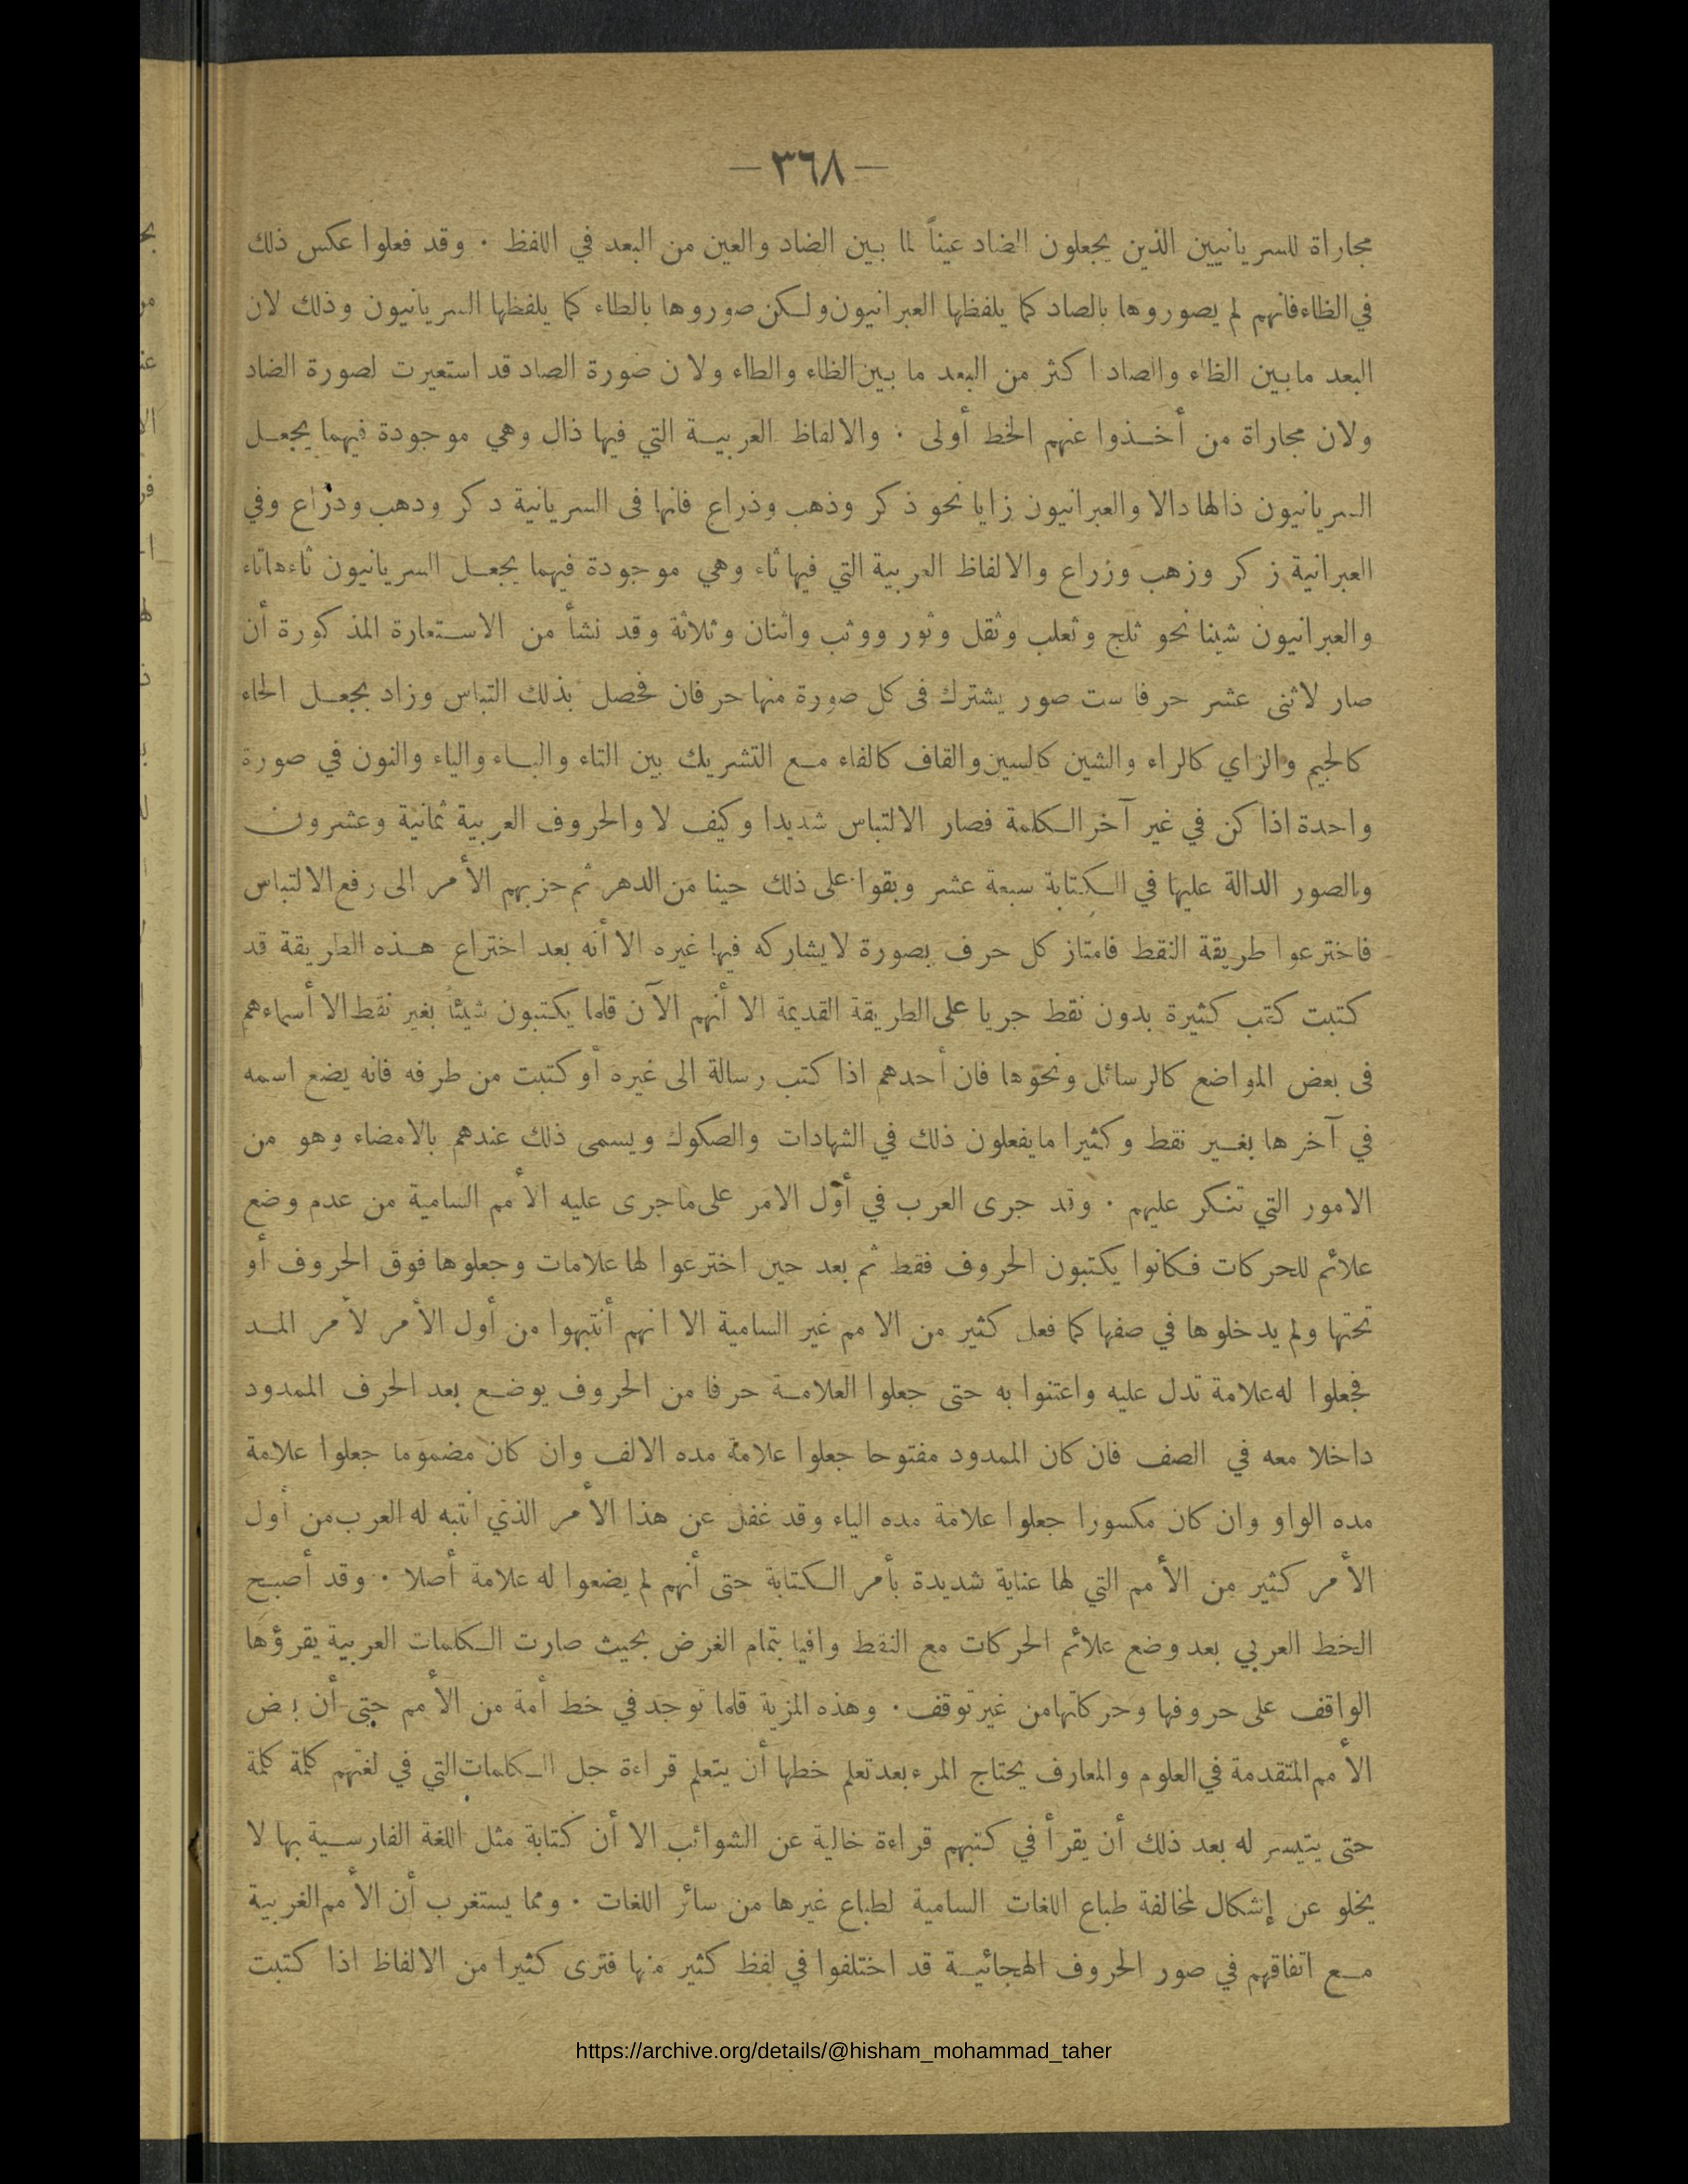 — ٣٦٨ —
مجاراة للسريانيين الذين يجعلون الضاد عيناً لما بين الضاد والعين من البعد في اللفظ . وقد فعلوا عكس ذلك
في الظاء فانهم لم يصوروها بالصاد كما يلفظها العبرانيون ولكن صوروها بالطاء كما يلفظها السريانيون وذلك لان
البعد مابين الظاء والصاد اكثر من البعد ما بين الظاء والطاء ولان صورة الصاد قد استعيرت لصورة الضاد
ولان مجاراة من أخذوا عنهم الخط أولى . والالفاظ العربية التي فيها ذال وهي موجودة فيهما يجعل
السريانيون ذالها دالا والعبرانيون زايا نحو ذكر وذهب وذراع فانها فى السريانية دكر ودهب ودراع وفي
العبرانية زكر وزهب وزراع والالفاظ العربية التي فيها ثاء وهي موجودة فيهما يجعل السريانيون ثاءها تاء
والعبرانيون شينا نحو ثلج وثعلب وثقل وثور ووثب واثنان وثلاثة وقد نشأ من الاستعارة المذكورة أن
صار لاثنى عشر حرفا ست صور يشترك فى كل صورة منها حرفان فحصل بذلك التباس وزاد بجعل الحاء
كالجيم والزاي كالراء والشين كالسين والقاف كالفاء مع التشريك بين التاء والباء والياء والنون في صورة
واحدة اذا كن في غير آخر الكلمة فصار الالتباس شديدا وكيف لا والحروف العربية ثمانية وعشرون
والصور الدالة عليها في الكتابة سبعة عشر وبقوا على ذلك حينا من الدهر ثم حزبهم الأمر الى رفع الالتباس
فاخترعوا طريقة النقط فامتاز كل حرف بصورة لايشاركه فيها غيره الا أنه بعد اختراع هذه الطريقة قد
كتبت كتب كثيرة بدون نقط جريا على الطريقة القديمة الا أنهم الآن قلما يكتبون شيئاً بغير نقط الا أسماءهم
فى بعض المواضع كالرسائل ونحوها فان أحدهم اذا كتب رسالة الى غيره أو كتبت من طرفه فانه يضع اسمه
في آخرها بغير نقط وكثيرا مايفعلون ذلك في الشهادات والصكوك ويسمى ذلك عندهم بالامضاء وهو من
الامور التي تنكر عليهم . وقد جرى العرب في أول الامر على ماجرى عليه الأمم السامية من عدم وضع
علائم للحركات فكانوا يكتبون الحروف فقط ثم بعد حين اخترعوا لها علامات وجعلوها فوق الحروف أو
تحتها ولم يدخلوها في صفها كما فعل كثير من الامم غير السامية الا انهم أنتبهوا من أول الأمر لأمر المد
فجعلوا له علامة تدل عليه واعتنوا به حتى جعلوا العلامة حرفا من الحروف يوضع بعد الحرف الممدود
داخلا معه في الصف فان كان الممدود مفتوحا جعلوا علامة مده الالف وان كان مضموما جعلوا علامة
مده الواو وان كان مكسورا جعلوا علامة مده الياء وقد غفل عن هذا الأمر الذي انتبه له العرب من أول
الأمر كثير من الأمم التي لها عناية شديدة بأمر الكتابة حتى أنهم لم يضعوا له علامة أصلا . وقد أصبح
الخط العربي بعد وضع علائم الحركات مع النقط وافيا بتمام الغرض بحيث صارت الكلمات العربية يقرؤها
الواقف على حروفها وحركاتها من غير توقف . وهذه المزية قلما توجد في خط أمة من الأمم حتى أن بعض
الأمم المتقدمة في العلوم والمعارف يحتاج المرء بعد تعلم خطها أن يتعلم قراءة جل الكلمات التي في لغتهم كلمة كلمة
حتى يتيسر له بعد ذلك أن يقرأ في كتبهم قراءة خالية عن الشوائب الا أن كتابة مثل اللغة الفارسية بها لا
يخلو عن إشكال لمخالفة طباع اللغات السامية لطباع غيرها من سائر اللغات . ومما يستغرب أن الأمم الغربية
مع اتفاقهم في صور الحروف الهجائية قد اختلفوا في لفظ كثير منها فترى كثيرا من الالفاظ اذا كتبت
https://archive.org/details/@hisham_mohammad_taher